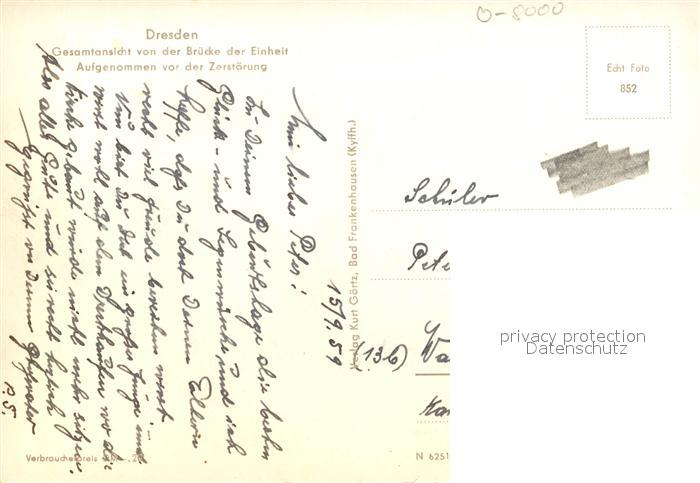 O-8000
Dresden
Gesamtansicht von der Brücke der Einheit
Aufgenommen vor der Zerstörung
Echt Foto
852
Mein lieber Peter!
Zu Deinem Geburtstage die besten
Glück- und Segenswünsche und ich
hoffe, daß Du dort Deinen Eltern
recht viel Freude bereiten wirst
Nun bist Du doch ein großer Junge und
wirst wohl auf dem wo die
Kirche gebaut wurde nicht mehr
Also alles Gute und sei recht
Gegrüßt von Deinem
P.S.
15/9.59
Verlag Kurt Görtz, Bad Frankenhausen (Kyffh.)
Schüler
Pete
(13b) Wa
privacy protection
Datenschutz
Verbraucherpreis
N 6251